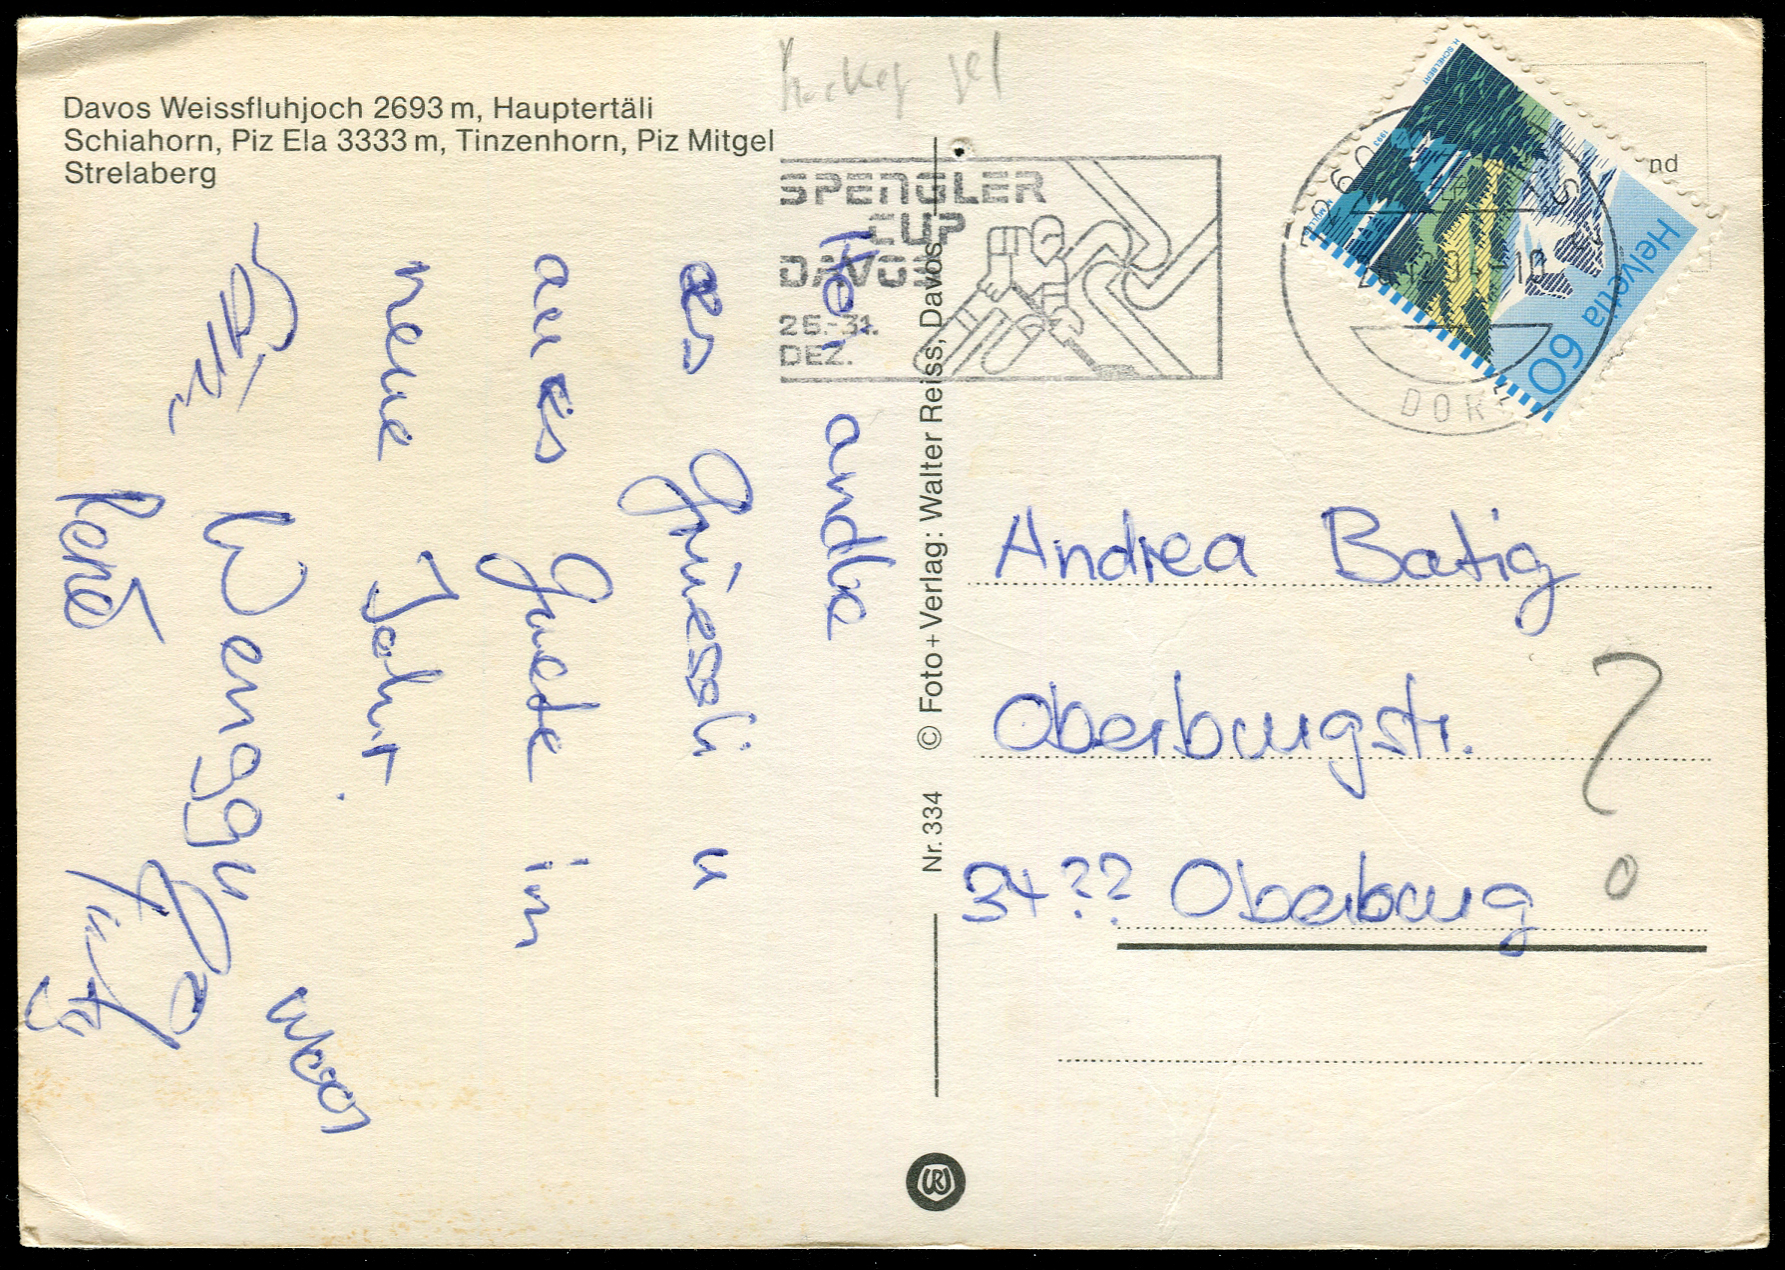 Davos Weissfluhjoch 2693 m, Hauptertäli
Schiahorn, Piz Ela 3333 m, Tinzenhorn, Piz Mitgel
Strelaberg
SPENGLER
CUP
DAVOS
26.-31.
DEZ.
H. SCHELBERT
1993
Helvetia 60
nd
DORF
Nr. 334 © Foto+Verlag: Walter Reiss, Davos
Hoi andle
es Grüessli u
au es Guete in
neue Jahr.
Wenggu
René
Andrea Batig
Oberburgstr.
34?? Oberburg
?